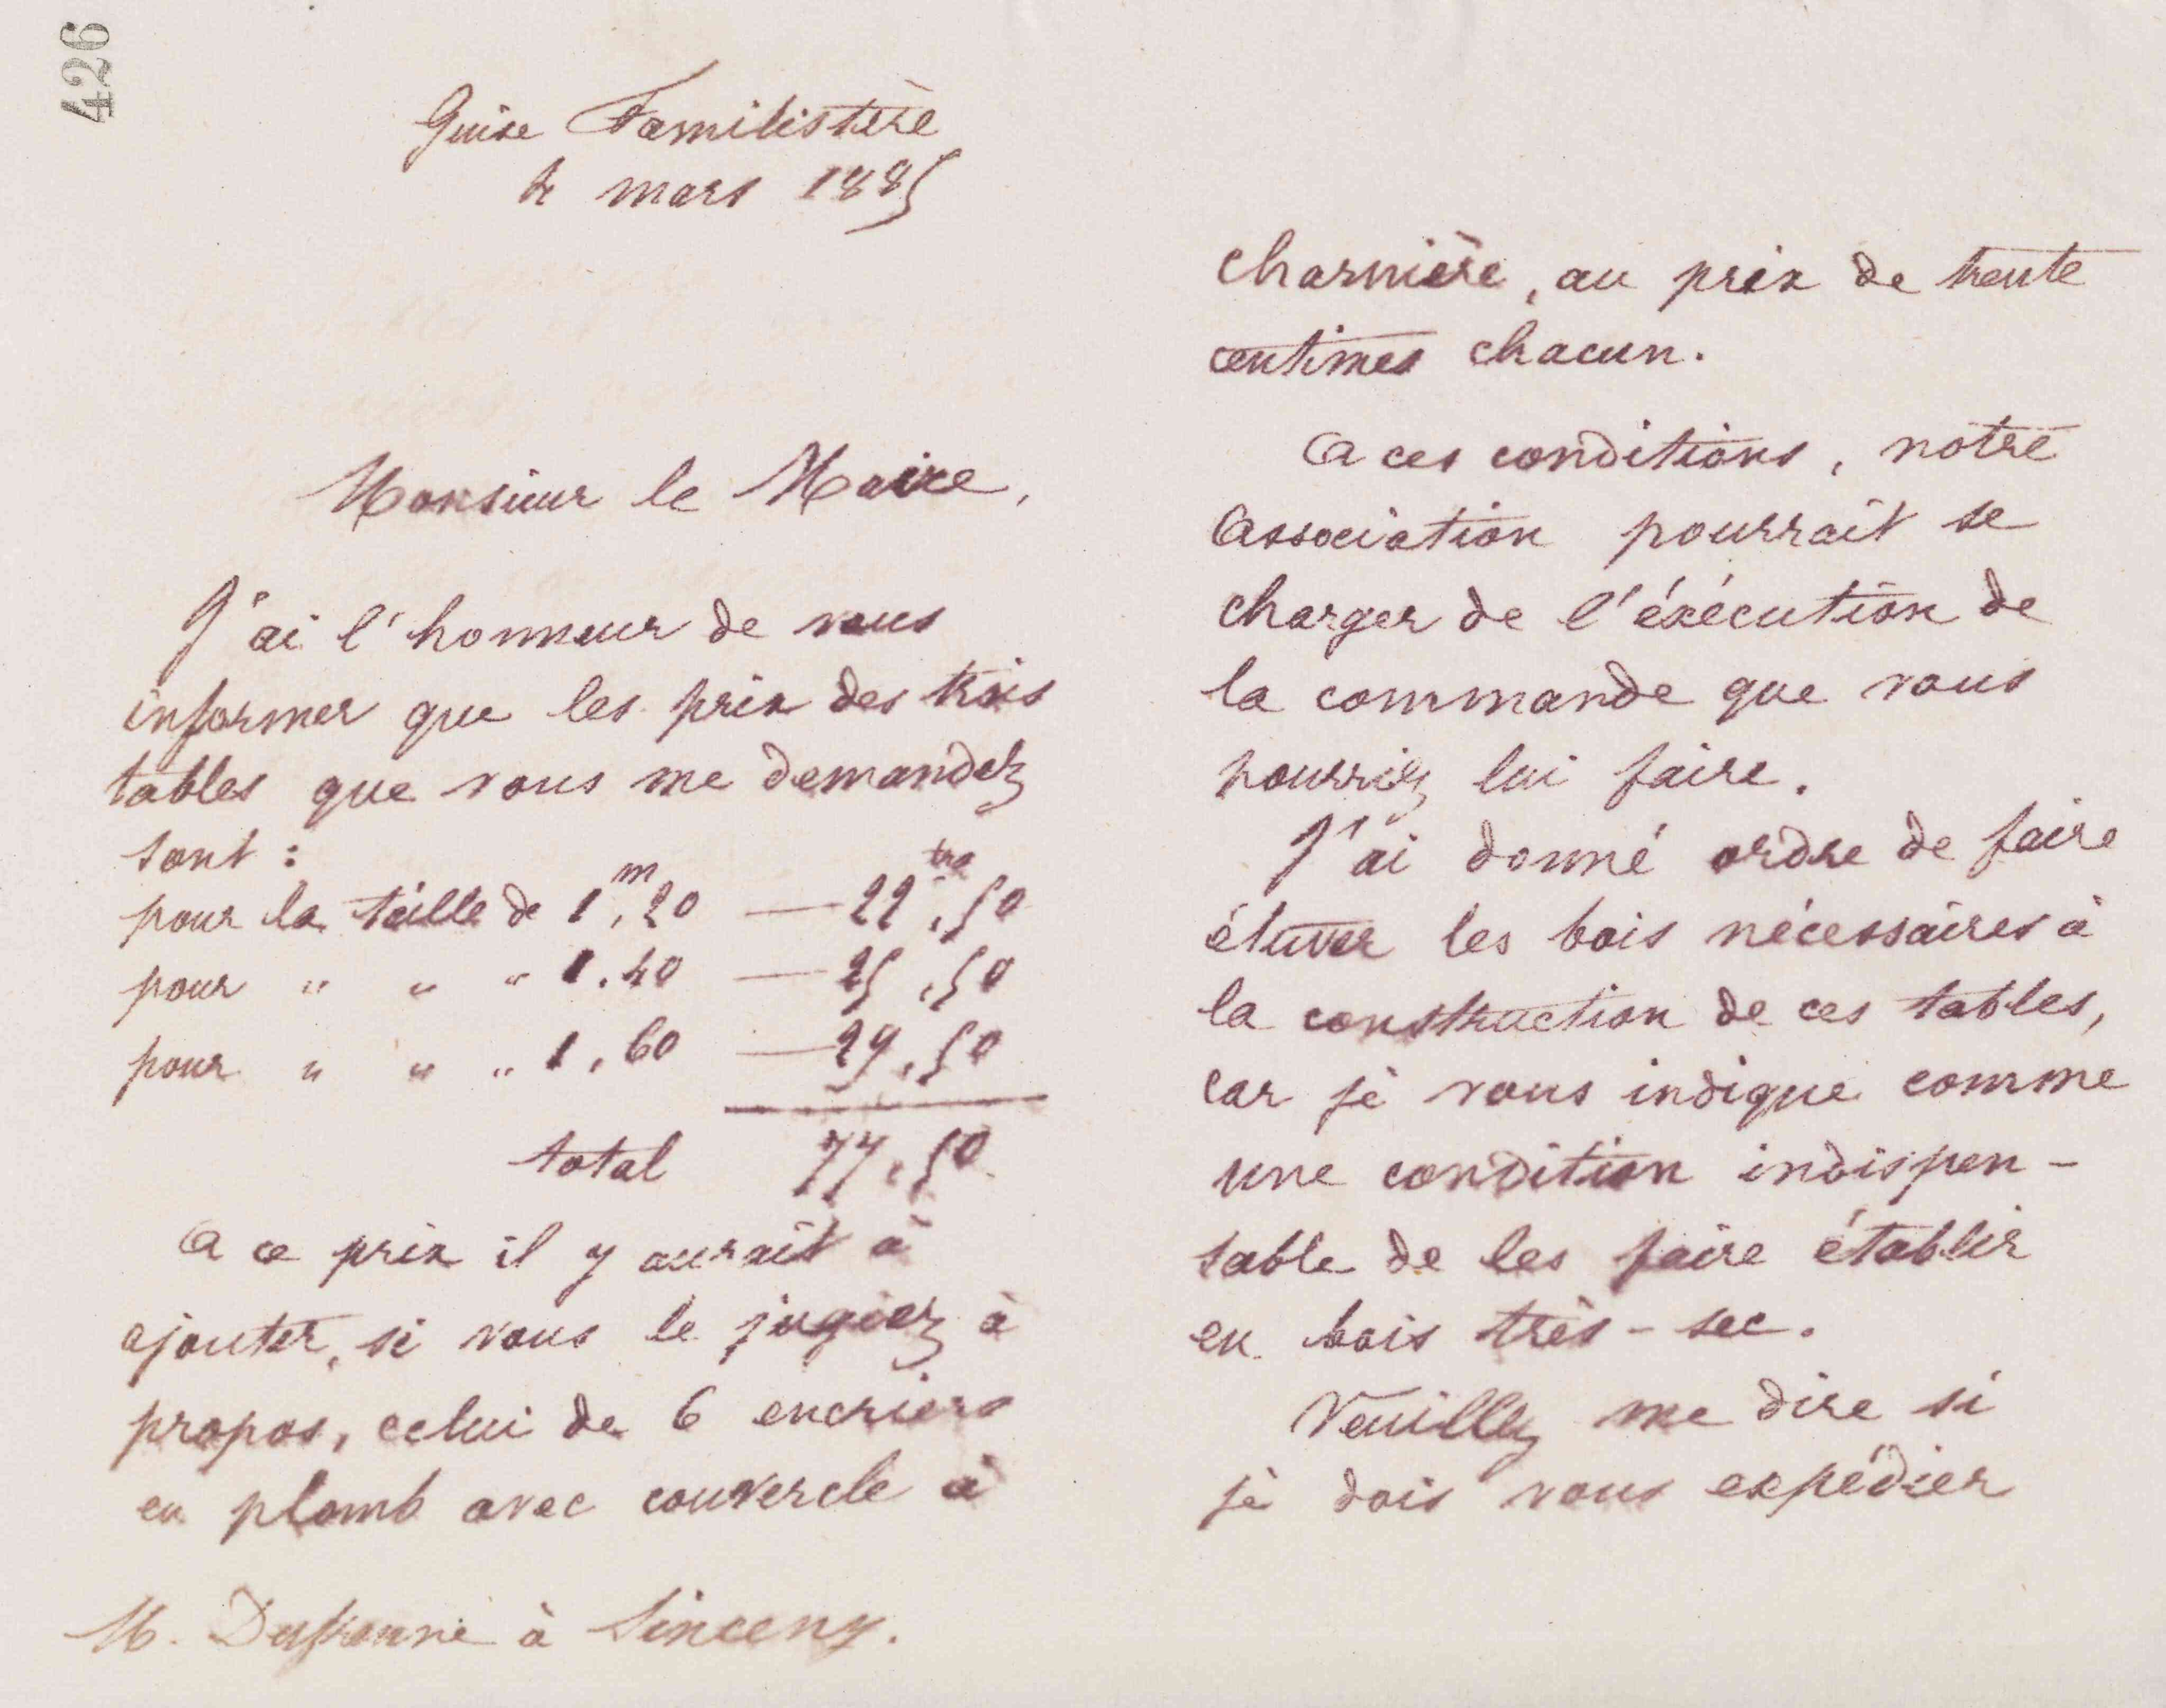 426
Guise Familistère
4 mars 1885
Monsieur le Maire,
J'ai l'honneur de vous
informer que les prix des trois
tables que vous me demandez
sont :
pour la taille de 1m,20 — 22frs,50
pour " " " 1.40 — 25,50
pour " " " 1,60 — 29,50
total 77,50
A ce prix il y aurait à
ajouter, si vous le jugiez à
propos, celui de 6 encriers
en plomb avec couvercle à
M. à Sinceny.
charnière, au prix de trente
centimes chacun.
A ces conditions, notre
Association pourrait se
charger de l'éxécution de
la commande que vous
pourriez lui faire.
J'ai donné ordre de faire
étuver les bois nécessaires à
la construction de ces tables,
car je vous indique comme
une condition indispen-
sable de les faire établir
en bois très-sec.
Veuillez me dire si
je dois vous expédier